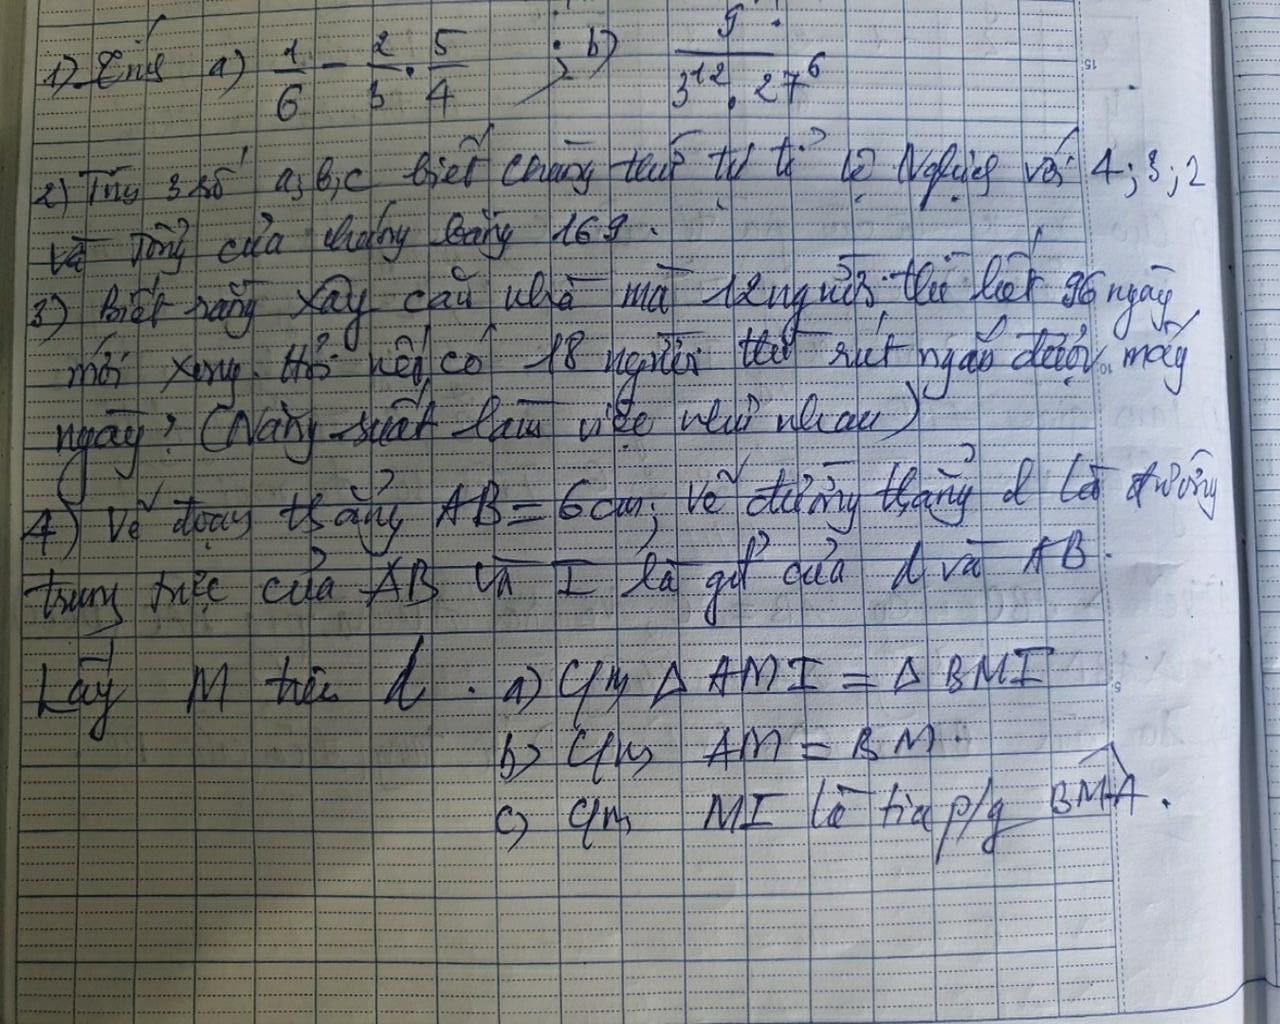 1) Tính a) 1/6 - 2/3 . 5/4 ; b) 9 / 3^12 . 27^6
2) Tìm 3 số a, b, c biết chúng thứ tự tỉ lệ Nghịch với 4; 3; 2
và Tổng của chúng bằng 169.
3) Biết rằng xây căn nhà mà 12 người thì hết 96 ngày
mới xong. Hỏi nếu có 18 người thì rút ngắn được mấy
ngày? (Năng suất làm việc như nhau)
4) Vẽ đoạn thẳng AB = 6cm; vẽ đường thẳng d là đường
trung trực của AB và I là gđ của d và AB.
Lấy M trên d. a) C/m Δ AMI = Δ BMI
b) C/m AM = BM.
c) C/m MI là tia p/g BMA.
15
10
5